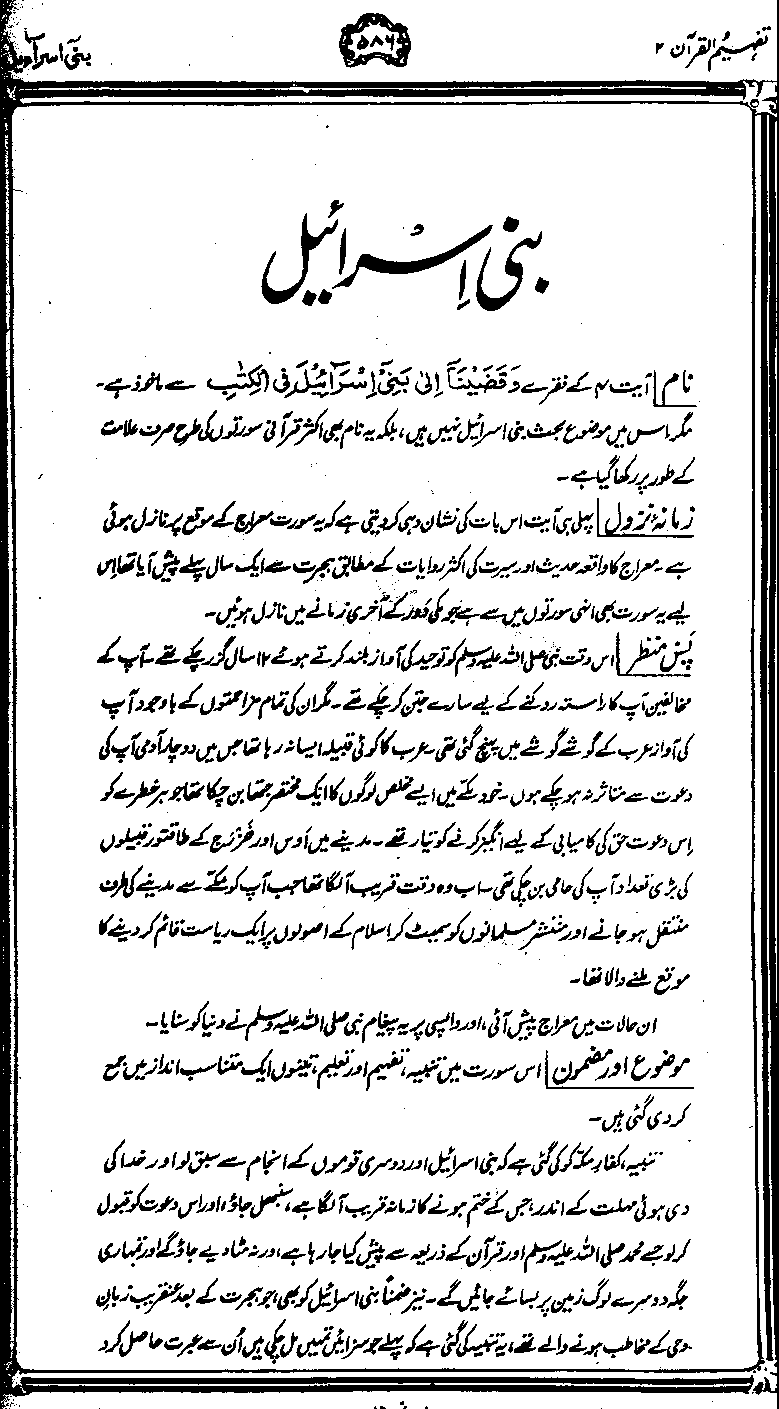 تفہیم القرآن ۲
۵۸۶
بنی اسرآءیل
بنی اِسْرائیل
نام | آیت ۴ کے فقرے وَقَضَيْنَآ اِلٰى بَنِيْٓ اِسْرَآءِيْلَ فِى الْكِتٰبِ سے ماخوذ ہے۔
مگر اس میں موضوع بحث بنی اسرائیل نہیں ہیں، بلکہ یہ نام بھی اکثر قرآنی سورتوں کی طرح صرف علامت
کے طور پر رکھا گیا ہے۔
زمانۂ نزول | پہلی ہی آیت اس بات کی نشان دہی کر دیتی ہے کہ یہ سورت معراج کے موقع پر نازل ہوئی
ہے۔ معراج کا واقعہ حدیث اور سیرت کی اکثر روایات کے مطابق ہجرت سے ایک سال پہلے پیش آیا تھا اِس
لیے یہ سورت بھی انہی سورتوں میں سے ہے جو مکی دَور کے آخری زمانے میں نازل ہوئیں۔
پس منظر | اس وقت نبی صلی اللہ علیہ وسلم کو توحید کی آواز بلند کرتے ہوئے ۱۲ سال گزر چکے تھے۔ آپ کے
مخالفین آپ کا راستہ روکنے کے لیے سارے جتن کر چکے تھے۔ مگر ان کی تمام مزاحمتوں کے باوجود آپ
کی آواز عرب کے گوشے گوشے میں پہنچ گئی تھی۔ عرب کا کوئی قبیلہ ایسا نہ رہا تھا جس میں دو چار آدمی آپ کی
دعوت سے متاثر نہ ہو چکے ہوں۔ خود مکّے میں ایسے مخلص لوگوں کا ایک مختصر جتھا بن چکا تھا جو ہر خطرے کو
اِس دعوت حق کی کامیابی کے لیے انگیز کرنے کو تیار تھے۔ مدینے میں اَوس اور خَزرَج کے طاقتور قبیلوں
کی بڑی تعداد آپ کی حامی بن چکی تھی۔ اب وہ وقت قریب آ لگا تھا جب آپ کو مکّے سے مدینے کی طرف
منتقل ہو جانے اور منتشر مسلمانوں کو سمیٹ کر اسلام کے اصولوں پر ایک ریاست قائم کر دینے کا
موقع ملنے والا تھا۔
ان حالات میں معراج پیش آئی، اور واپسی پر یہ پیغام نبی صلی اللہ علیہ وسلم نے دنیا کو سنایا۔
موضوع اور مضمون | اس سورت میں تنبیہ، تفہیم اور تعلیم، تینوں ایک متناسب انداز میں جمع
کر دی گئی ہیں۔
تنبیہ، کفار مکہ کو کی گئی ہے کہ بنی اسرائیل اور دوسری قوموں کے انجام سے سبق لو اور خدا کی
دی ہوئی مہلت کے اندر، جس کے ختم ہونے کا زمانہ قریب آ لگا ہے، سنبھل جاؤ، اور اس دعوت کو قبول
کر لو جسے محمد صلی اللہ علیہ وسلم اور قرآن کے ذریعہ سے پیش کیا جا رہا ہے، ورنہ مٹا دیے جاؤ گے اور تمہاری
جگہ دوسرے لوگ زمین پر بسائے جائیں گے۔ نیز ضمناً بنی اسرائیل کو بھی، جو ہجرت کے بعد عنقریب زبانِ
وحی کے مخاطب ہونے والے تھے، یہ تنبیہ کی گئی ہے کہ پہلے جو سزائیں تمہیں مل چکی ہیں اُن سے عبرت حاصل کرو